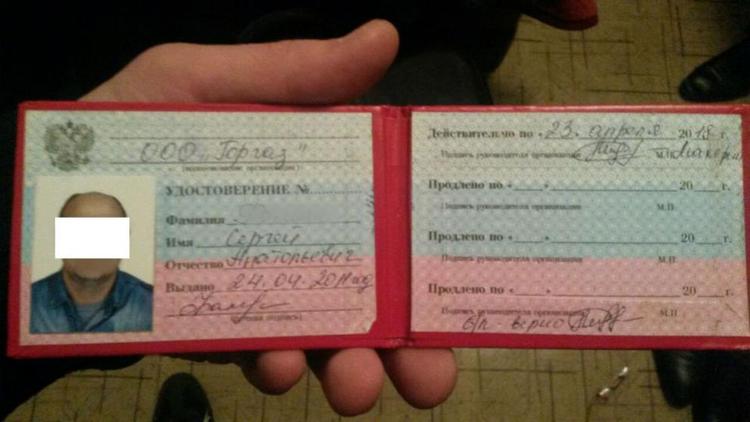 ООО „Горгаз"
(наименование организации)
УДОСТОВЕРЕНИЕ №
Фамилия
Имя Сергей
Отчество Анатольевич
Выдано 24.04.2011 год
(личная подпись)
Действительно по « 23 » апреля 2018 г.
Подпись руководителя организации М.П.
Продлено по « » 20 г.
Подпись руководителя организации М.П.
Продлено по « » 20 г.
Подпись руководителя организации М.П.
Продлено по « » 20 г.
Подпись руководителя организации М.П.
верно